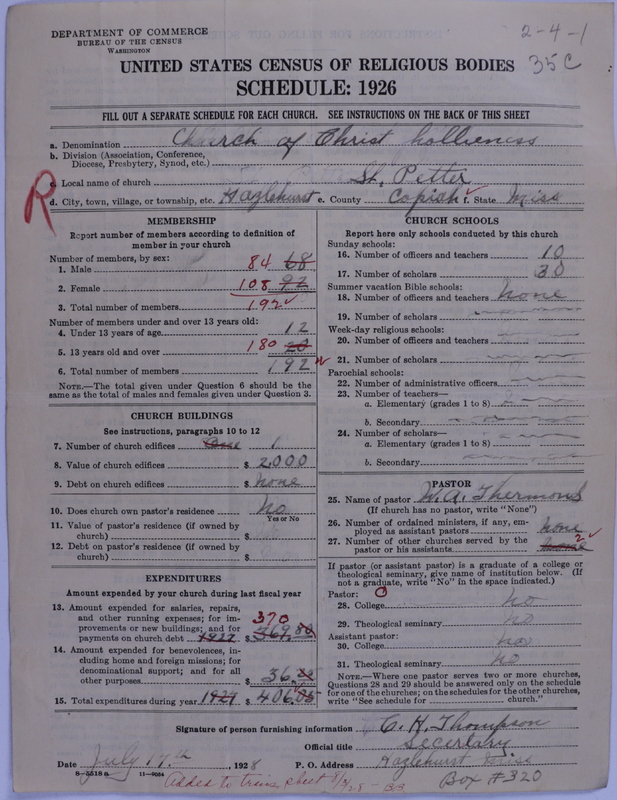 DEPARTMENT OF COMMERCE
BUREAU OF THE CENSUS
WASHINGTON
2-4-1
35C
UNITED STATES CENSUS OF RELIGIOUS BODIES
SCHEDULE: 1926
FILL OUT A SEPARATE SCHEDULE FOR EACH CHURCH. SEE INSTRUCTIONS ON THE BACK OF THIS SHEET
a. Denomination Church of Christ hollieness
b. Division (Association, Conference,
Diocese, Presbytery, Synod, etc.)
R
c. Local name of church St. Petter
d. City, town, village, or township, etc. Hazlehurst e. County Copiah f. State Miss
MEMBERSHIP
Report number of members according to definition of
member in your church
Number of members, by sex:
1. Male 84 68
2. Female 108 92
3. Total number of members 192
Number of members under and over 13 years old:
4. Under 13 years of age 12
5. 13 years old and over 180 20
6. Total number of members 192
NOTE.—The total given under Question 6 should be
same as the total of males and females given under Question 3.
CHURCH BUILDINGS
See instructions, paragraphs 10 to 12
7. Number of church edifices 1
8. Value of church edifices $ 2,000
9. Debt on church edifices $ none
10. Does church own pastor's residence No
Yes or No
11. Value of pastor's residence (if owned by
church) $
12. Debt on pastor's residence (if owned by
church) $
EXPENDITURES
Amount expended by your church during last fiscal year
13. Amount expended for salaries, repairs,
and other running expenses; for im-
provements or new buildings; and for
payments on church debt 1927 $ 370 369.80
14. Amount expended for benevolences, in-
cluding home and foreign missions; for
denominational support; and for all
other purposes $ 36.25
15. Total expenditures during year 1927 $ 406.05
CHURCH SCHOOLS
Report here only schools conducted by this church
Sunday schools:
16. Number of officers and teachers 10
17. Number of scholars 30
Summer vacation Bible schools:
18. Number of officers and teachers none
19. Number of scholars
Week-day religious schools:
20. Number of officers and teachers
21. Number of scholars
Parochial schools:
22. Number of administrative officers
23. Number of teachers—
a. Elementary (grades 1 to 8)
b. Secondary
24. Number of scholars—
a. Elementary (grades 1 to 8)
b. Secondary
PASTOR
25. Name of pastor W. A. Thermons
(If church has no pastor, write "None")
26. Number of ordained ministers, if any, em-
ployed as assistant pastors none
27. Number of other churches served by the
pastor or his assistants none 2
If pastor (or assistant pastor) is a graduate of a college or
theological seminary, give name of institution below. (If
not a graduate, write "No" in the space indicated.)
Pastor:
28. College no
29. Theological seminary no
Assistant pastor:
30. College no
31. Theological seminary no
NOTE.—Where one pastor serves two or more churches,
Questions 28 and 29 should be answered only on the schedule
for one of the churches; on the schedules for the other churches,
write "See schedule for church."
Signature of person furnishing information C. H. Thompson
Official title Secertary
Date July 17th, 1928 P. O. Address Hazlehurst Miss
8—5518a 11—9034
Box #320
Added to trans sheet 8/3/28